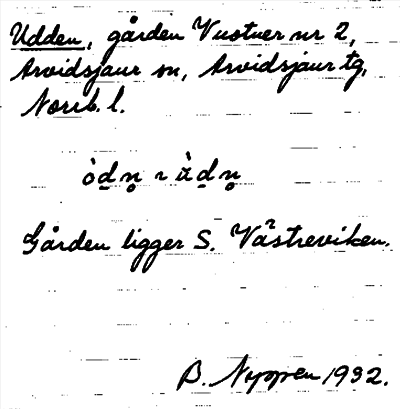 Udden, gården Vustner nr 2,
Arvidsjaur sn, Arvidsjaur tg,
Norrb. l.
òdn̥ ~ ùdn̥
Gården ligger S. Västreviken.
B. Nyppen 1932.